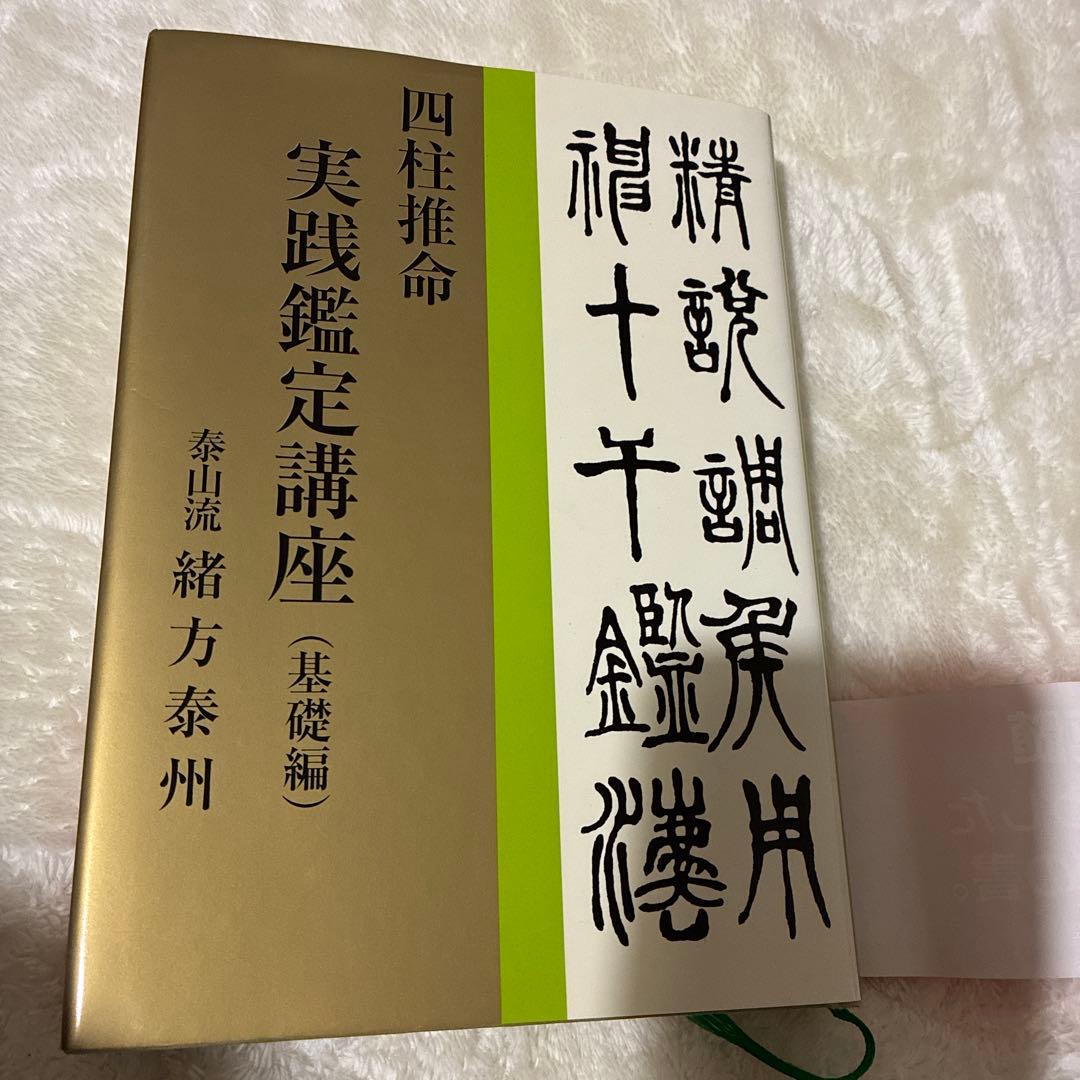 精説調候用
神十干鑑法
四柱推命
実践鑑定講座（基礎編）
泰山流 緒方泰州